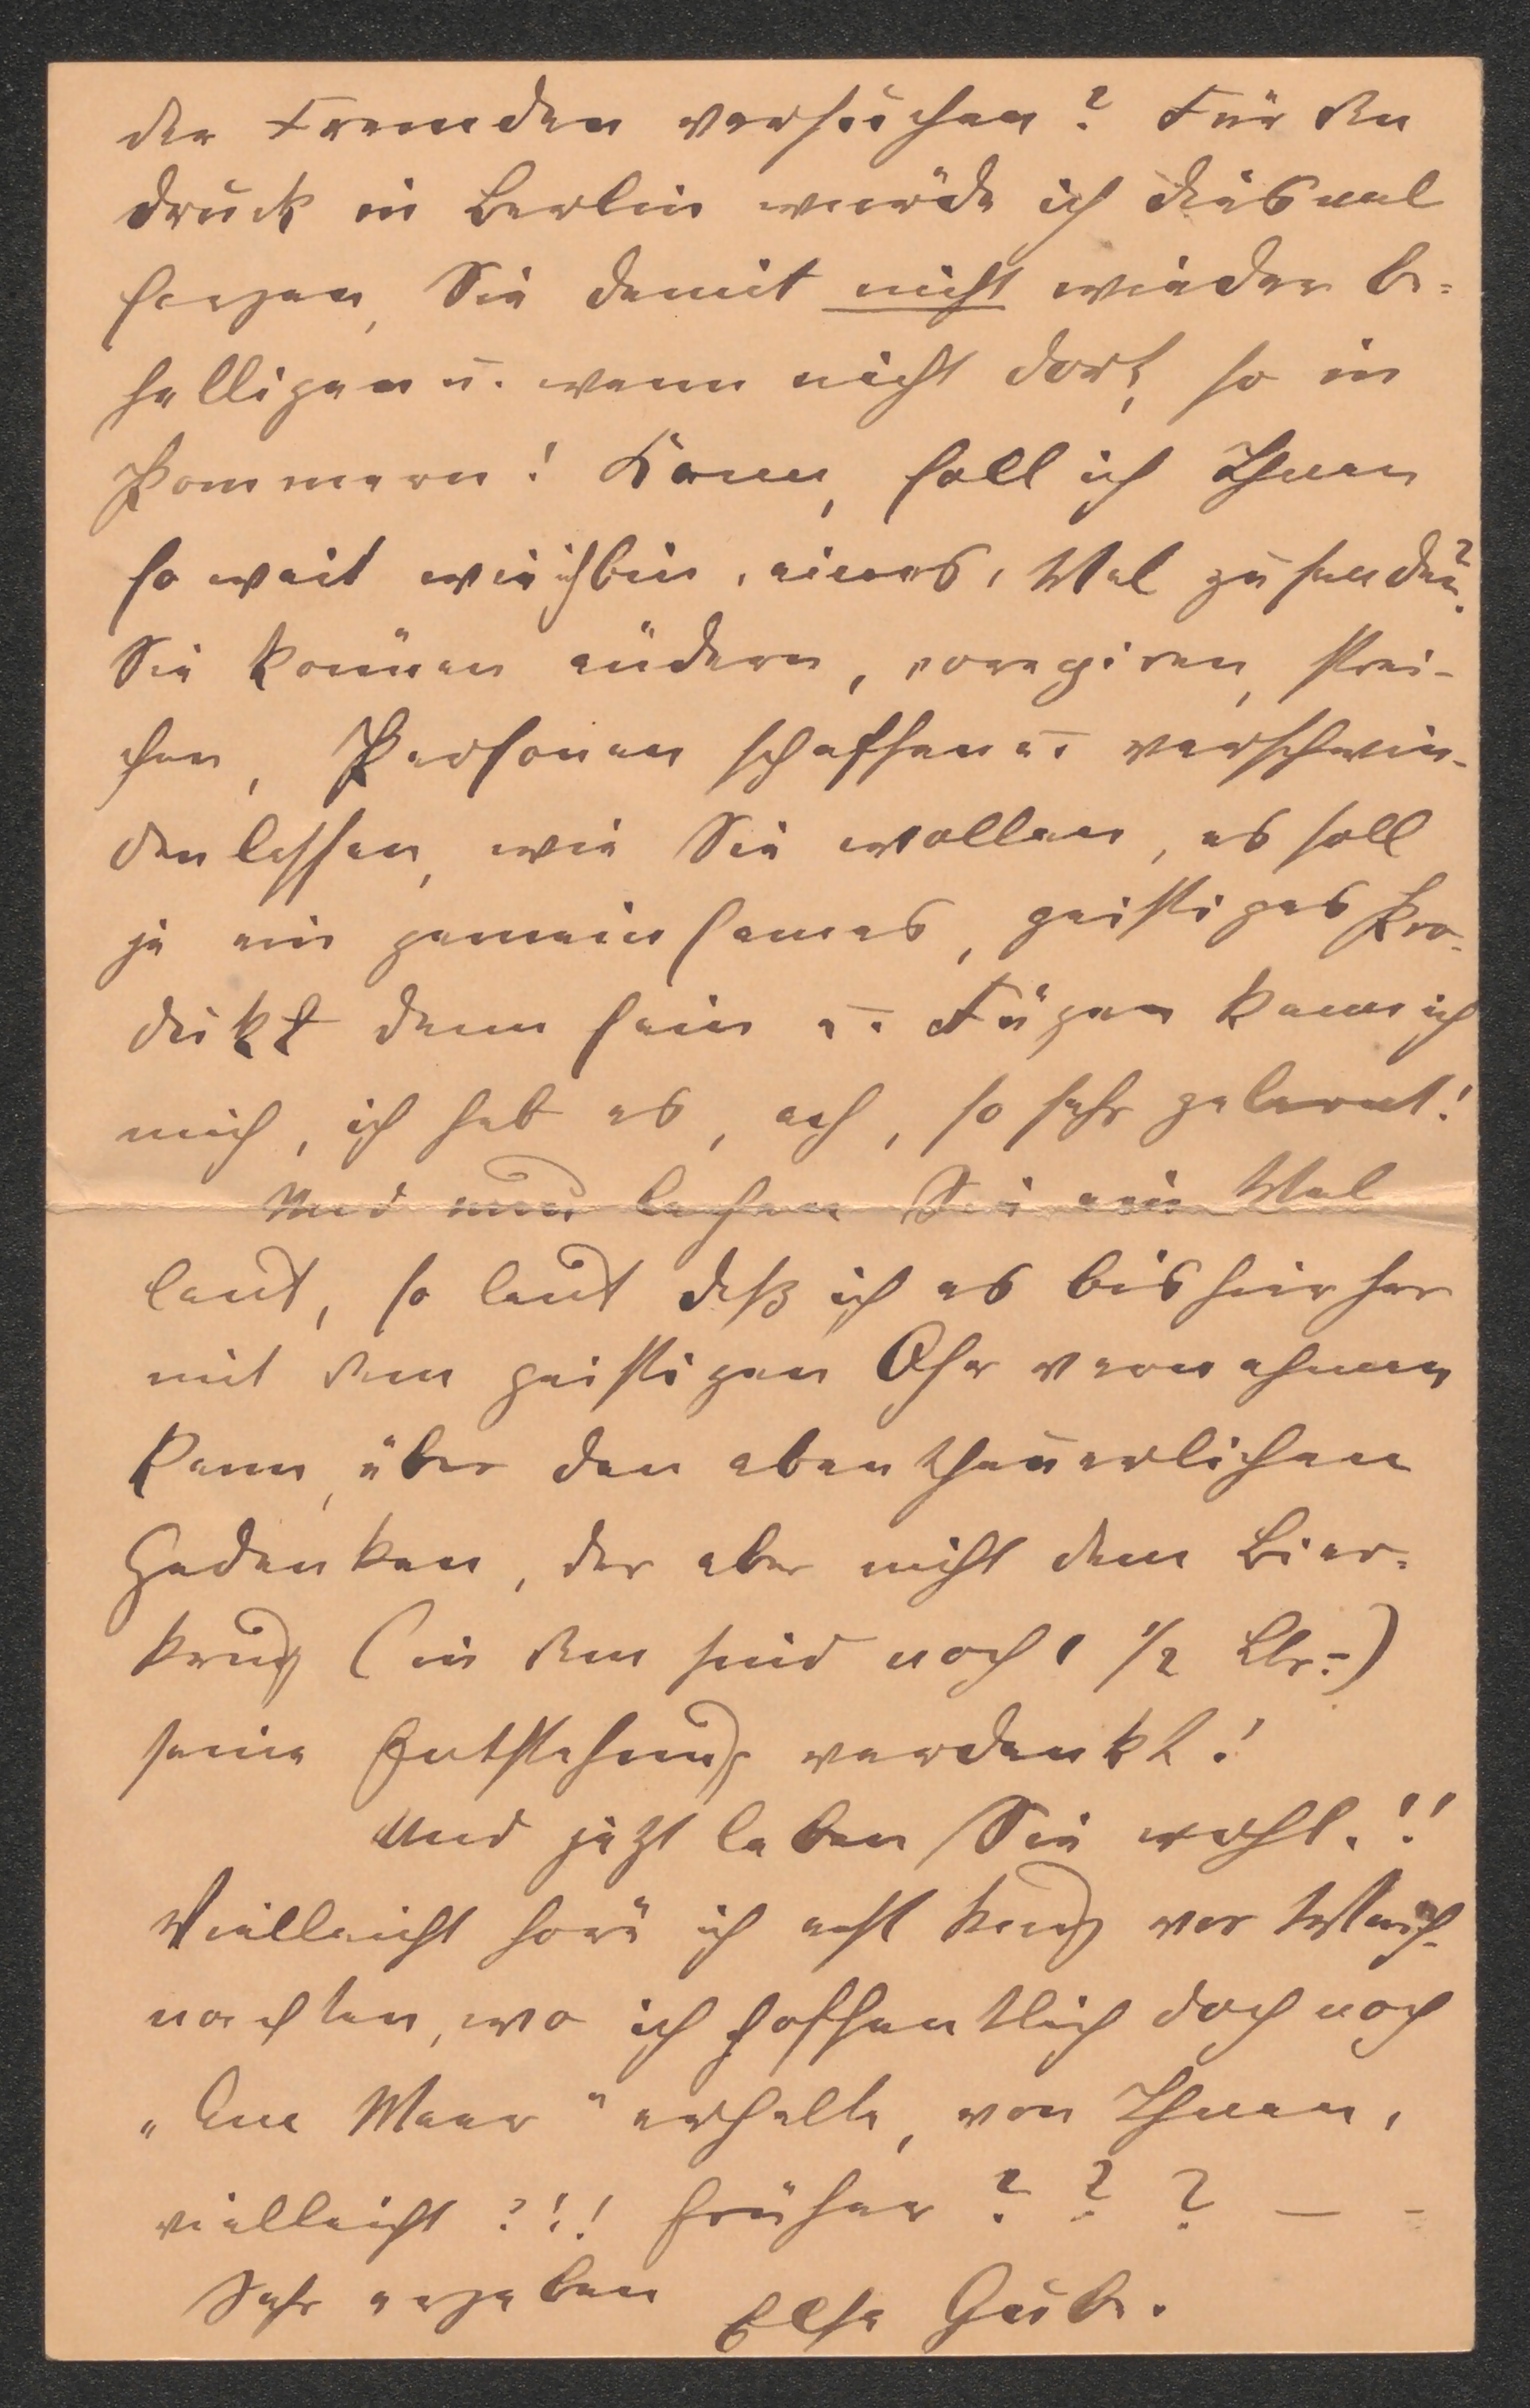 der Fremden versuchen? Für den
Druck in Berlin würde ich diesmal
sorgen, Sie damit nicht wieder be-
helligen u. wenn nicht dort, so in
Pommern! Kann, soll ich Ihnen
so weit wie ich bin, eines, Mal zusenden?
Sie können ändern, coregiren, strei-
chen, Personen schaffen u. verschwin-
den lassen, wie Sie wollen, es soll
ja ein gemeinsames, geistiges Pro-
dukt denn sein u. Fügen kann ich
mich, ich hab es, ach, so sehr gelernt!
Und nun lachen Sie ein Mal
laut, so laut daß ich es bis hierher
mit dem geistigen Ohr vernehmen
kann, über den abentheuerlichen
Gedanken, der aber nicht dem Bier-
krug (in dem sind noch 1 1/2 Ltr.-)
seine Entstehung verdankt!
Und jetzt leben Sie wohl.!!
Vielleicht hörë ich erst kurz vor Weih-
nachten, wo ich hoffentlich doch noch
"Am Meer" erhalte, von Ihnen,
vielleicht ?!! früher ? ? ? — -
Sehr ergeben Else Gube.